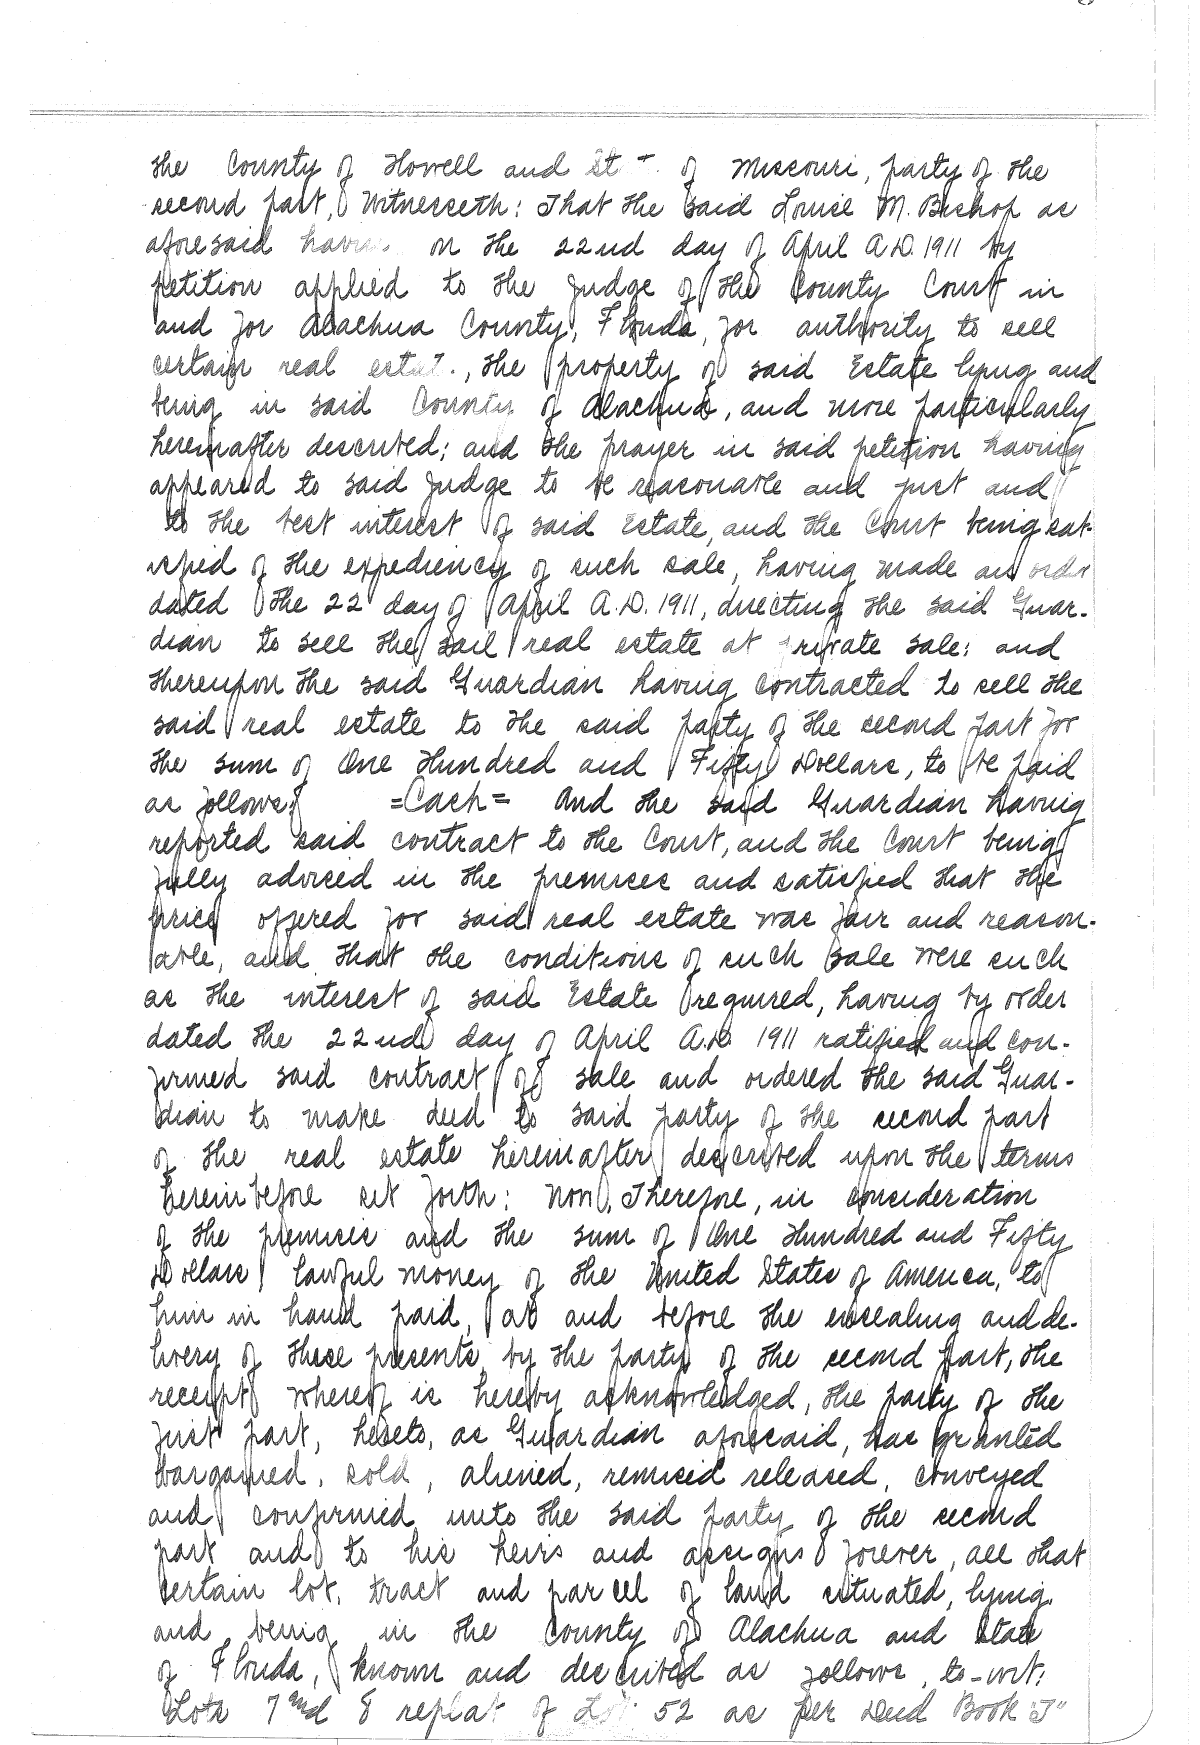 the County of Howell and St of Missouri, party of the
second part, Witnesseth: That the said Louise M. Bishop as
aforesaid having on the 22nd day of April A.D. 1911 by
petition applied to the Judge of the County Court in
and for Alachua County, Florida, for authority to sell
certain real estat., the property of said Estate lying and
being in said County of Alachua, and more particularly
hereinafter described; and the prayer in said petition having
appeared to said Judge to be reasonable and just and
to the best interest of said Estate, and the Court being sat-
isfied of the expediency of such sale, having made an order
dated the 22 day of April A.D. 1911, directing the said Guar-
dian to sell the said real estate at private sale; and
thereupon the said Guardian having contracted to sell the
said real estate to the said party of the second part for
the sum of One Hundred and Fifty Dollars, to be paid
as follows: =Cash= And the said Guardian having
reported said contract to the Court, and the Court being
fully advised in the premises and satisfied that the
price offered for said real estate was fair and reason-
able, and that the conditions of such sale were such
as the interest of said Estate required, having by order
dated the 22nd day of April A.D. 1911 ratified and con-
firmed said contract of sale and ordered the said Guar-
dian to make deed to said party of the second part
of the real estate hereinafter described upon the terms
hereinbefore set forth: Now, Therefore, in consideration
of the premises and the sum of One Hundred and Fifty
Dollars lawful money of the United States of America, to
him in hand paid, at and before the ensealing and de-
livery of these presents, by the party of the second part, the
receipt whereof is hereby acknowledged, the party of the
first part, hesets, as Guardian aforesaid, has granted
bargained, sold, aliened, remised released, conveyed
and confirmed unto the said party of the second
part and to his heirs and assigns forever, all that
certain lot, tract and parcel of land situated, lying,
and being in the County of Alachua and State
of Florida, known and described as follows, to-wit:
Lots 7 and 8 replat of Lot 52 as per Deed Book "J"